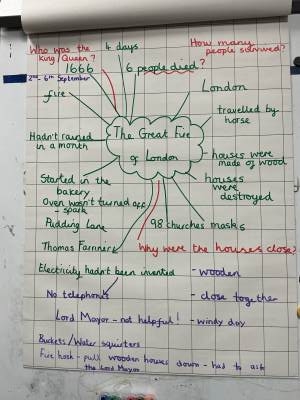 Who was the king/Queen?
4 days
How many people survived?
1666
2nd - 6th September
6 people died?
fire
London
travelled by horse
Hadn't rained in a month
The Great Fire of London
houses were made of wood
houses were destroyed
Started in the bakery
Oven wasn't turned off - spark
Pudding Lane
98 churches
masks
Thomas Farriner
Why were the houses close?
Electricity hadn't been invented
- wooden
No telephones
- close together
Lord Mayor - not helpful!
- windy day
Buckets/Water squirters
Fire hook - pull wooden houses down - had to ask
the Lord Mayor